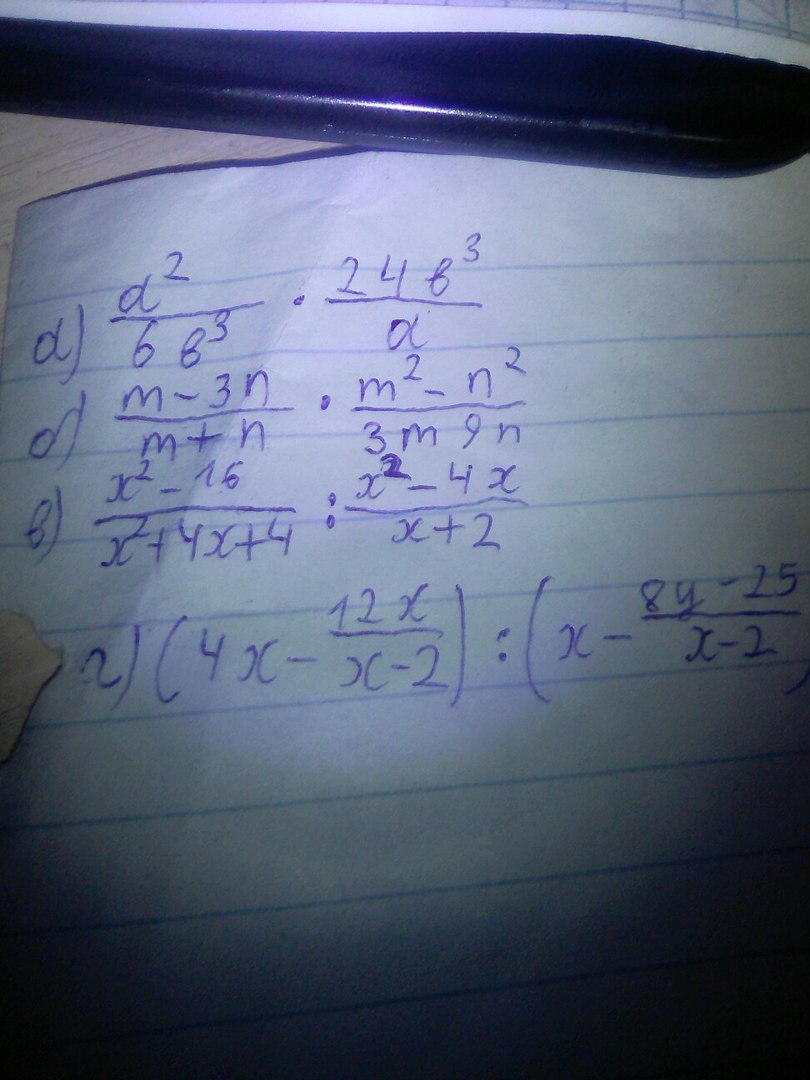 а) a²/6в³ · 24в³/a
б) m-3n/m+n · m²-n²/3m 9n
в) x²-16/x²+4x+4 : x²-4x/x+2
г) (4x - 12x/x-2) : (x - 8y-25/x-2)